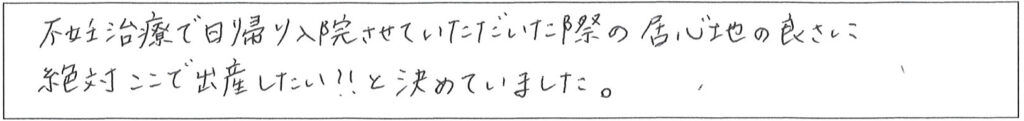 不妊治療で日帰り入院させていただいた際の居心地の良さに
絶対ここで出産したい!!と決めていました。